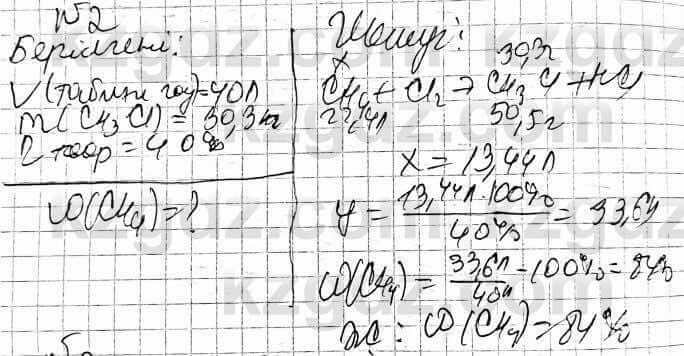 №2
Берілгені:
V(табиғи газ)=40л
m(CH₃Cl) = 30,3кг
η теор = 40%
ω(CH₄)=?
Шешуі:
x 30,3г
CH₄ + Cl₂ → CH₃Cl + HCl
22,4л 50,5г
x = 13,44л
y = 13,44л·100% / 40% = 33,6л
ω(CH₄) = 33,6л / 40л · 100% = 84%
Ж: ω(CH₄) = 84%
kzgdz.com